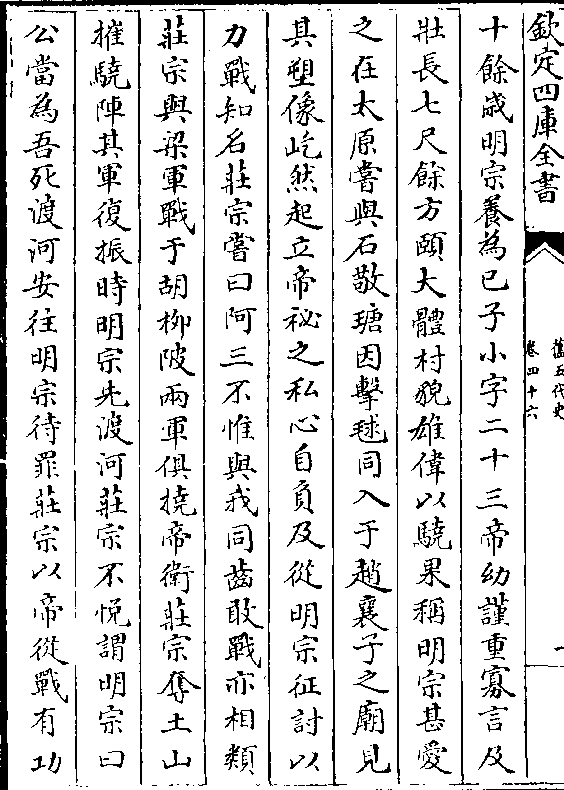 欽定四庫全書
舊五代史
卷四十六
一
十餘歲明宗養為已子小字二十三帝幼謹重寡言及
壯長七尺餘方頤大體材貌雄偉以驍果稱明宗甚愛
之在太原嘗與石敬瑭因擊毬同入于趙襄子之廟見
其塑像屹然起立帝秘之私心自負及從明宗征討以
力戰知名莊宗嘗曰阿三不惟與我同齒敢戰亦相類
莊宗與梁軍戰于胡柳陂兩軍俱撓帝衛莊宗奪土山
摧驍陣其軍復振時明宗先渡河莊宗不悅謂明宗曰
公當為吾死渡河安往明宗待罪莊宗以帝從戰有功